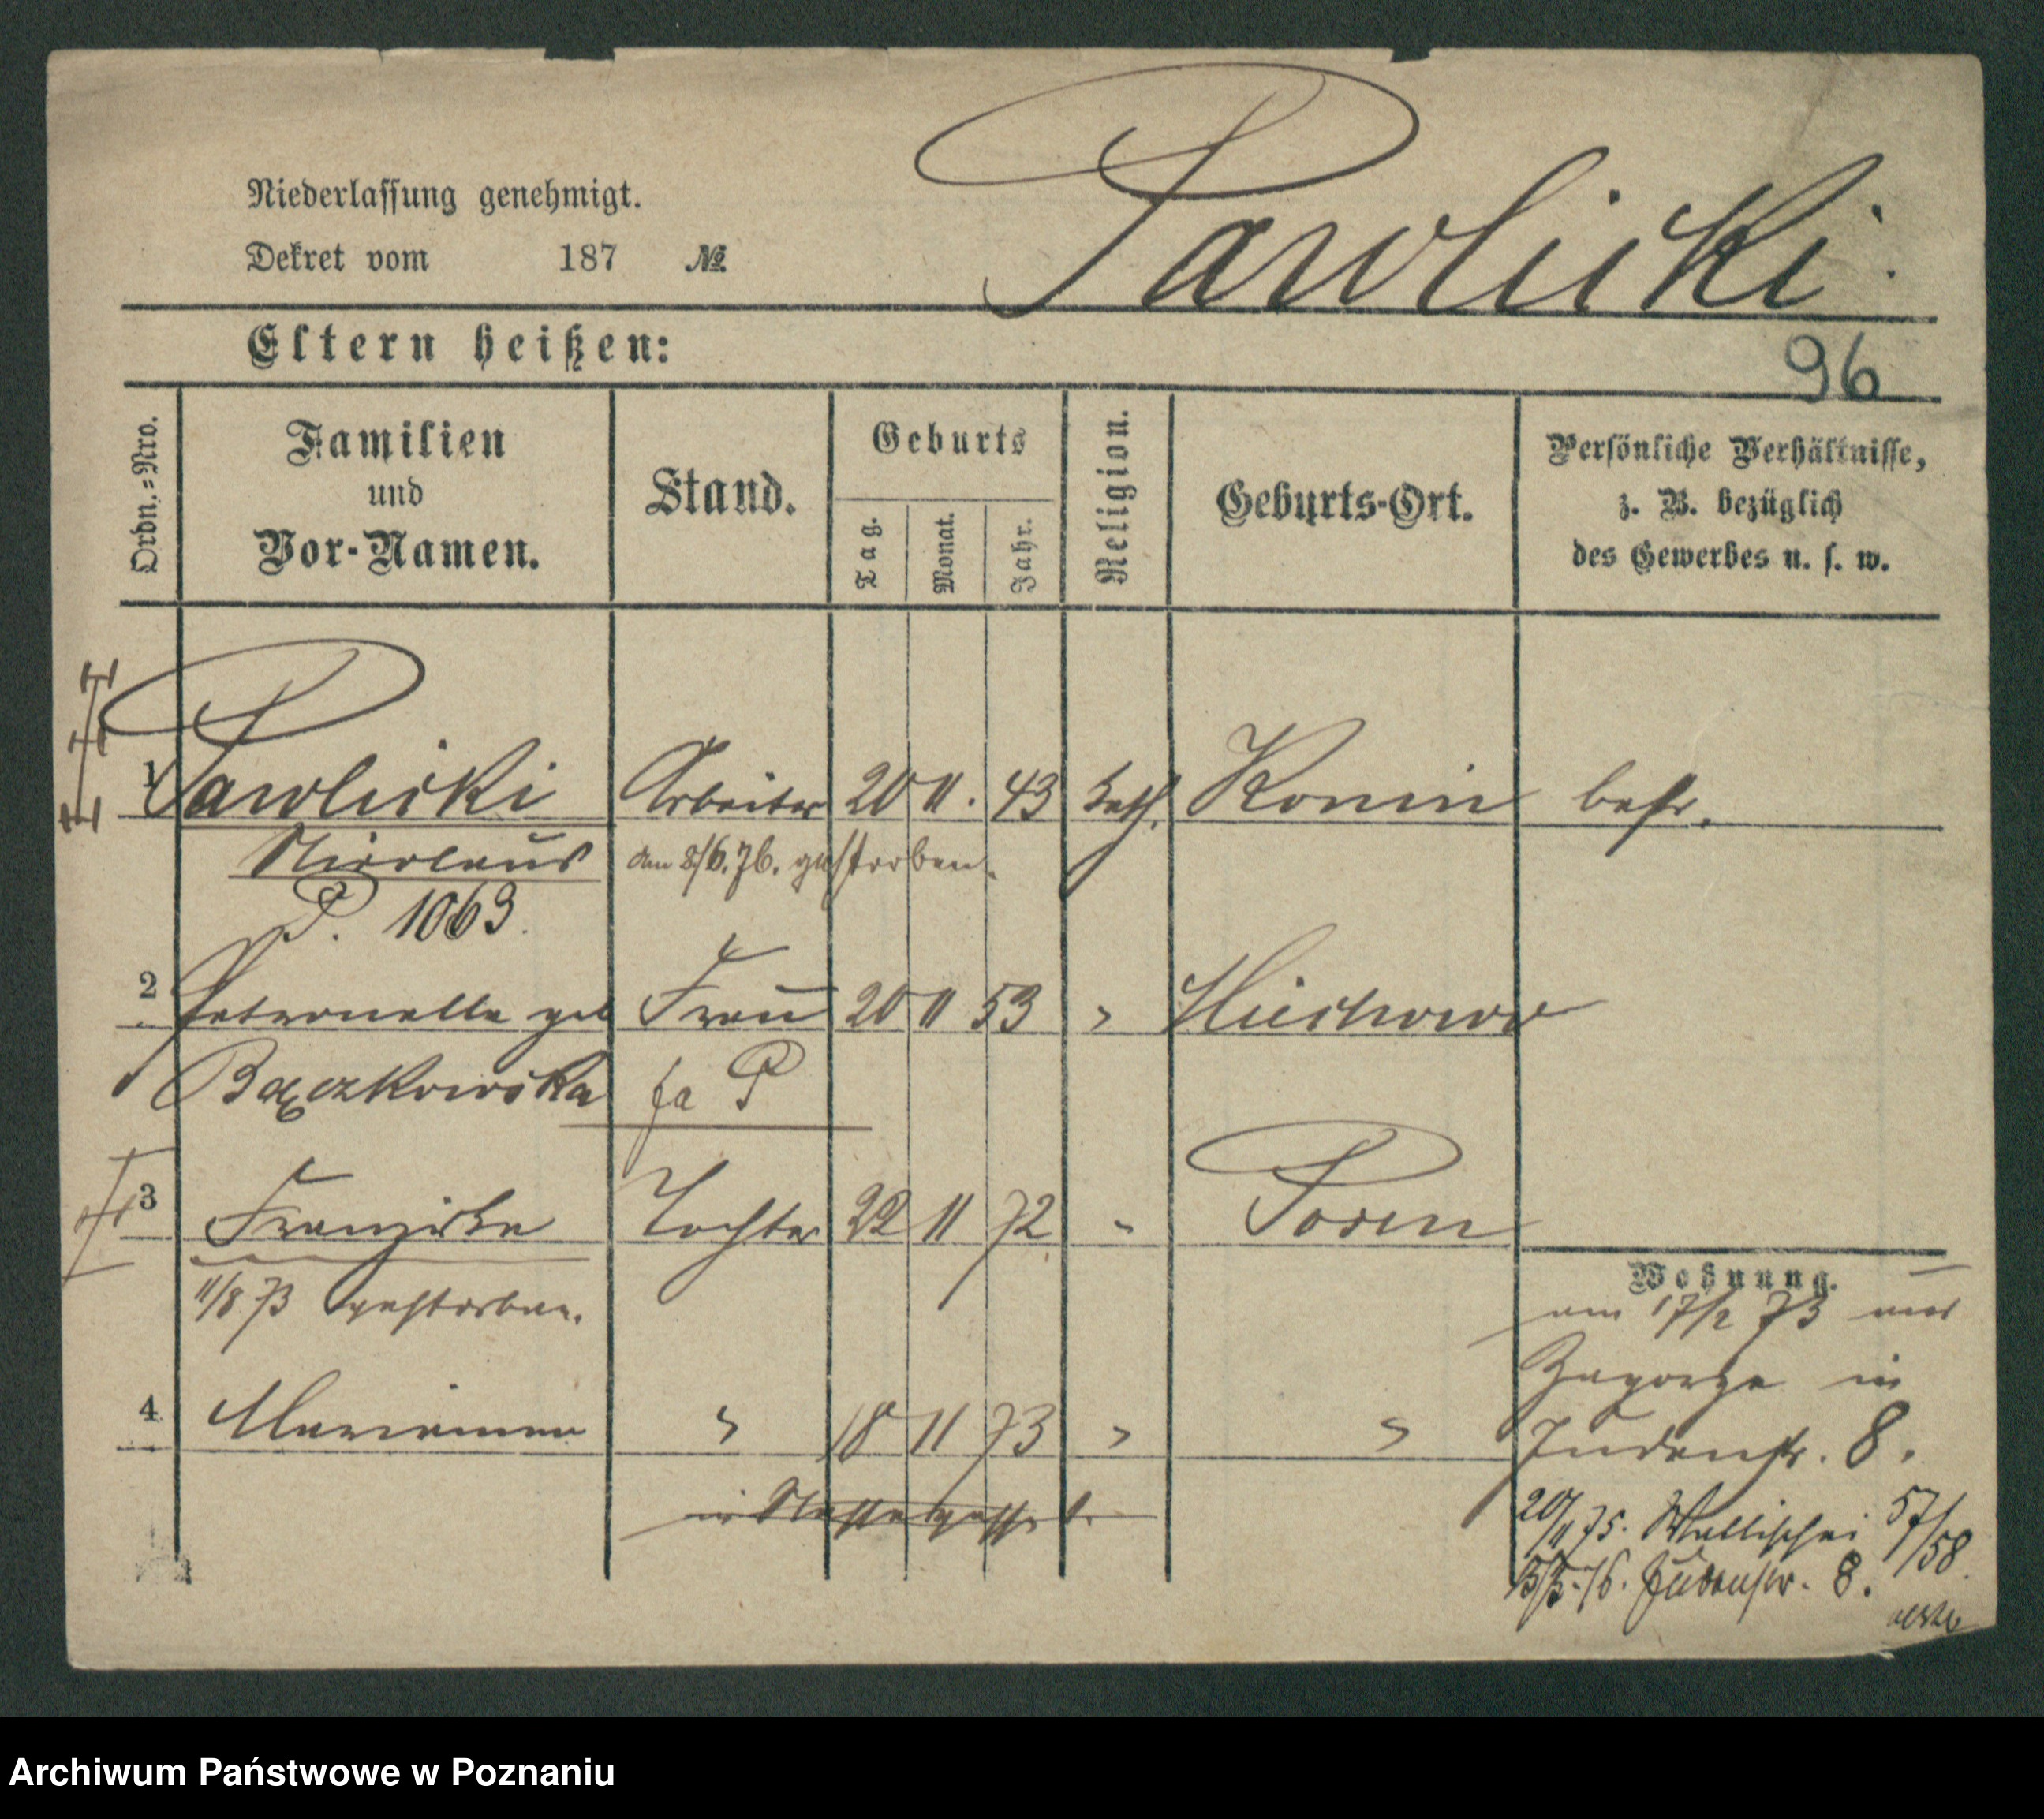 Pawlicki.
Niederlassung genehmigt.
Dekret vom 187 №
Eltern heißen:
96
Ordn.-Nro.
Familien und Vor-Namen.
Stand.
Geburts
Tag.
Monat.
Jahr.
Religion.
Geburts-Ort.
Persönliche Verhältnisse, z. B. bezüglich des Gewerbes u. s. w.
1 Pawlicki Arbeiter 20 11. 43 kath. Konin
Nicolaus den 8/6.76. gestorben.
P. 1063.
2 Petronella geb Frau 20 11 53 "
Bączkowska fa P
3 Franziska Tochter 22 11 72 " Posen
11/8 73 gestorben.
4 Marianna " 18 11 73 " "
Wohnung.
am 17/2 73 aus
Zagorze in
Judenstr. 8.
20/11 75. Wallischei 57/58.
Judenstr. 8.
Archiwum Państwowe w Poznaniu